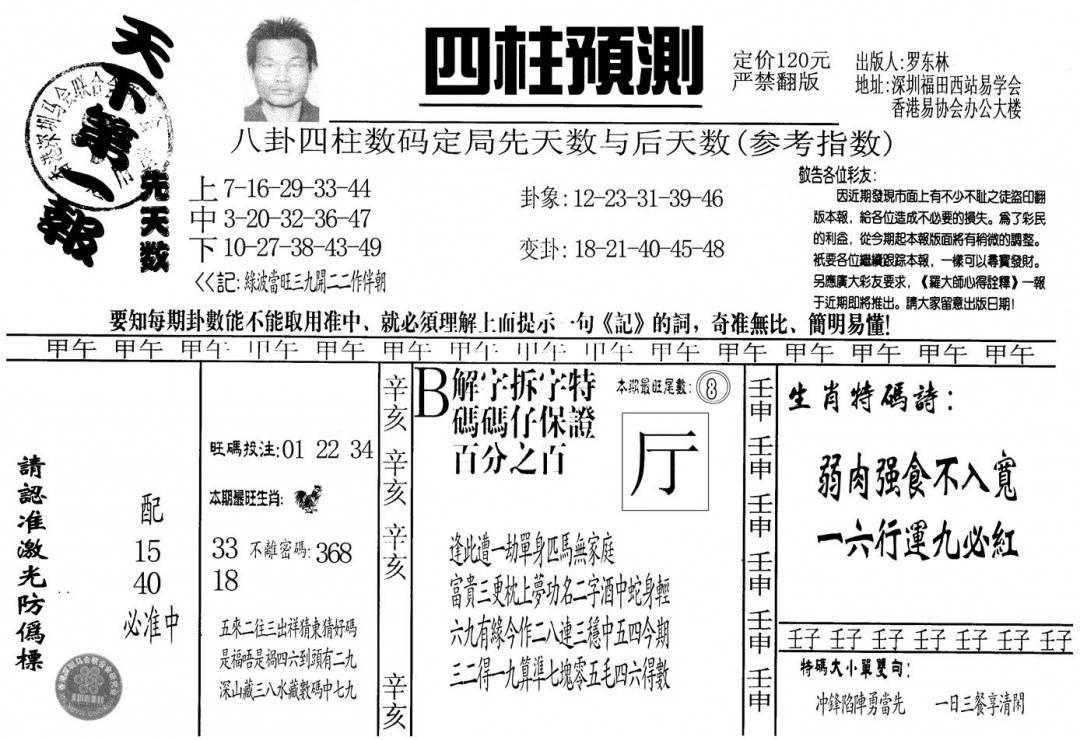 天下第一報
四柱預測
定价120元
严禁翻版
出版人:罗东林
地址:深圳福田西站易学会
香港易协会办公大楼
八卦四柱数码定局先天数与后天数(参考指数)
先天数
上 7-16-29-33-44
中 3-20-32-36-47
下 10-27-38-43-49
<<記: 綠波當旺三九開二二作伴朝
卦象: 12-23-31-39-46
变卦: 18-21-40-45-48
敬告各位彩友:
因近期發現市面上有不少不耻之徒盜印翻
版本報，給各位造成不必要的損失。爲了彩民
的利益，從今期起本報版面將有稍微的調整。
衹要各位繼續跟踪本報，一樣可以尋寶發財。
另應廣大彩友要求，《羅大師心得詮釋》一報
于近期即將推出。請大家留意出版日期！
要知每期卦數能不能取用准中、就必須理解上面提示一句《記》的詞，奇准無比、簡明易懂！
甲午 甲午 甲午 甲午 甲午 甲午 甲午 甲午 甲午 甲午 甲午 甲午 甲午 甲午 甲午
請認准激光防僞標
配
15
40
必准中
旺碼投注:01 22 34
本期最旺生肖:
33 不離密碼: 368
18
五來二往三出祥猜東猜好碼
是福唔是禍四六到頭有二九
深山藏三八水藏數碼中七九
辛亥
辛亥
辛亥
辛亥
B解字拆字特
碼碼仔保證
百分之百
本期最旺尾數: 8
厅
逢此遭一劫單身匹馬無家庭
富貴三更枕上夢功名二字酒中蛇身輕
六九有緣今作二八連三穩中五四今期
三二得一九算準七塊零五毛四六得數
壬申
壬申
壬申
壬申
壬申
壬申
生肖特碼詩:
弱肉强食不入寬
一六行運九必紅
壬子 壬子 壬子 壬子 壬子 壬子 壬子
特碼大小單雙句:
冲鋒陷陣勇當先 一日三餐享清閑